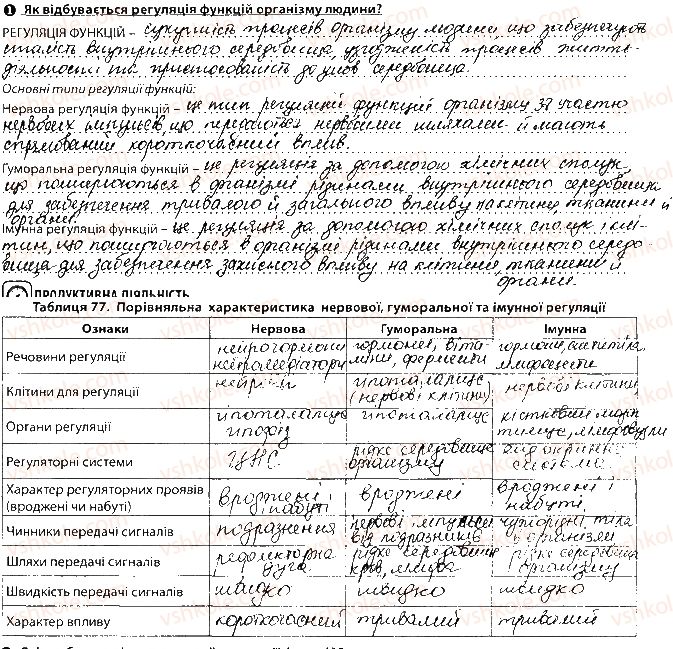 1 Як відбувається регуляція функцій організму людини?
РЕГУЛЯЦІЯ ФУНКЦІЙ – сукупність процесів організму людини, що забезпечують
сталість внутрішнього середовища, узгодженість процесів життє-
діяльності та пристосованість до умов середовища.
Основні типи регуляції функцій:
Нервова регуляція функцій – це тип регуляції функцій організму за участю
нервових імпульсів, що передаються нервовими шляхами й мають
спрямований короткочасний вплив.
Гуморальна регуляція функцій – це регуляція за допомогою хімічних сполук,
що поширюються в організмі рідинами внутрішнього середовища
для забезпечення тривалого й загального впливу на клітини, тканини й
органи.
Імунна регуляція функцій – це регуляція за допомогою хімічних сполук і клі-
тин, що поширюються в організмі рідинами внутрішнього середо-
вища для забезпечення захисного впливу на клітини, тканини й
органи.
ПРОДУКТИВНА ДІЯЛЬНІСТЬ
Таблиця 77. Порівняльна характеристика нервової, гуморальної та імунної регуляції
Ознаки Нервова Гуморальна Імунна
Речовини регуляції нейрогормони нейромедіатори гормони, вітаміни, ферменти гормони, лімфоцити
Клітини для регуляції нейрони гіпоталамус (нервові клітини) нервові клітини
Органи регуляції гіпоталамус гіпофіз гіпоталамус кістковий тимус, лімфовузли
Регуляторні системи ЦНС рідке середовище організму система
Характер регуляторних проявів
(вроджені чи набуті) вроджені і набуті вроджені вроджені і набуті
Чинники передачі сигналів подразнення нервові імпульси від подразників чужорідні тіла в організмі
Шляхи передачі сигналів рефлекторна дуга рідке середовище кров, лімфа рідке середовище організму
Швидкість передачі сигналів швидко швидко швидко
Характер впливу короткочасний тривалий тривалий